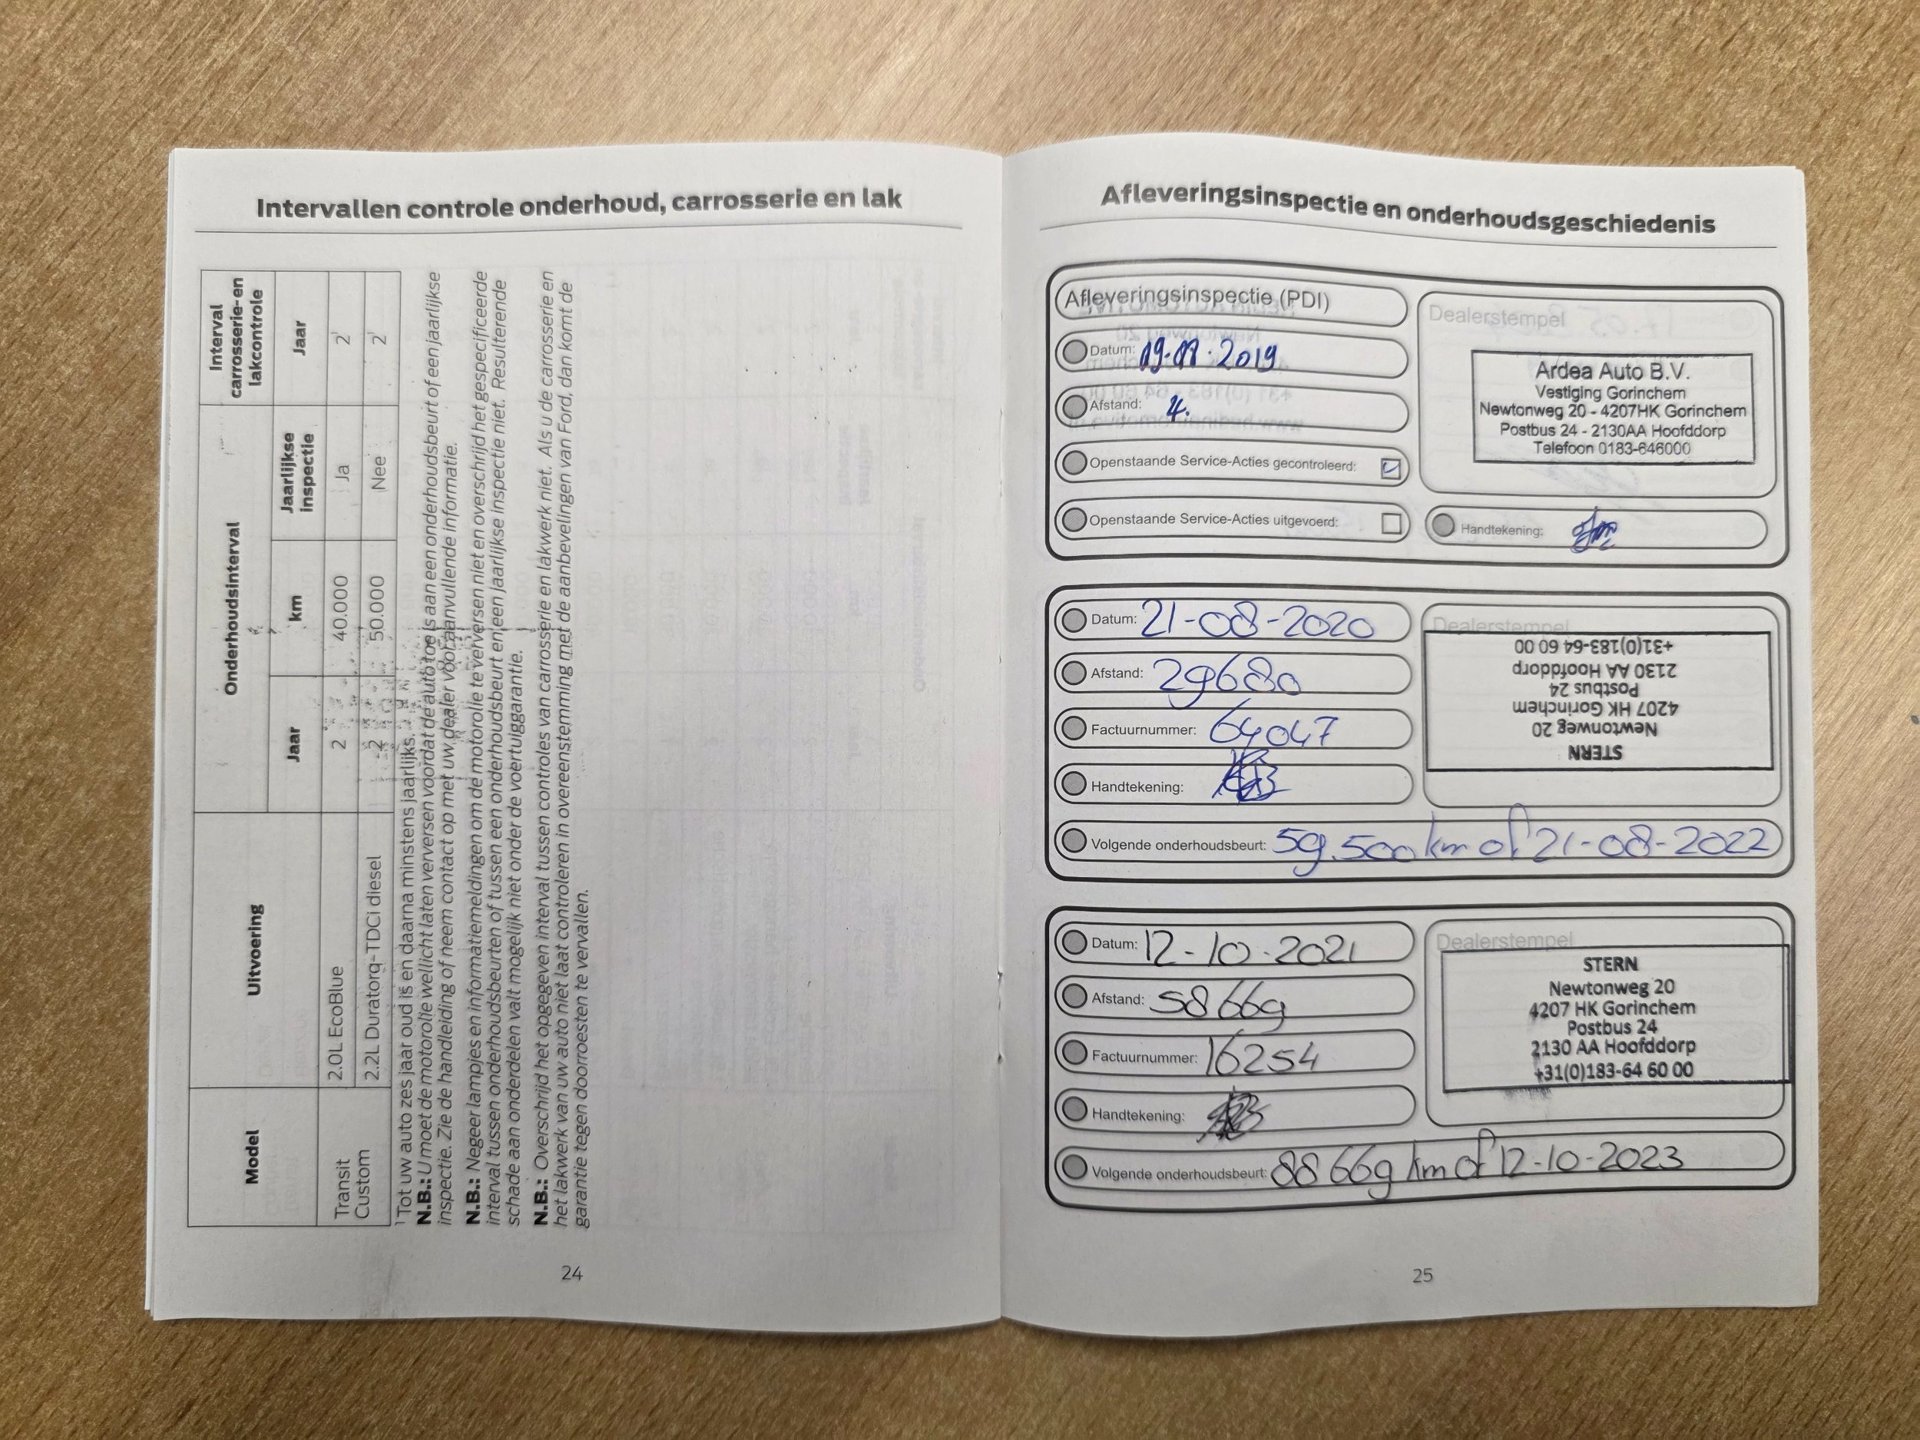 Intervallen controle onderhoud, carrosserie en lak
Model
Uitvoering
Onderhoudsinterval
Interval carrosserie- en lakcontrole
Jaar
km
Jaarlijkse inspectie
Jaar
Transit Custom
2.0L EcoBlue
2
40.000
Ja
2¹
2.2L Duratorq-TDCi diesel
2
50.000
Nee
2¹
¹ Tot uw auto zes jaar oud is en daarna minstens jaarlijks.
N.B.: U moet de motorolie wellicht laten verversen voordat de auto toe is aan een onderhoudsbeurt of een jaarlijkse
inspectie. Zie de handleiding of neem contact op met uw dealer voor aanvullende informatie.
N.B.: Negeer lampjes en informatiemeldingen om de motorolie te verversen niet en overschrijd het gespecificeerde
interval tussen onderhoudsbeurten of tussen een onderhoudsbeurt en een jaarlijkse inspectie niet. Resulterende
schade aan onderdelen valt mogelijk niet onder de voertuiggarantie.
N.B.: Overschrijd het opgegeven interval tussen controles van carrosserie en lakwerk niet. Als u de carrosserie en
het lakwerk van uw auto niet laat controleren in overeenstemming met de aanbevelingen van Ford, dan komt de
garantie tegen doorroesten te vervallen.
24
Afleveringsinspectie en onderhoudsgeschiedenis
Afleveringsinspectie (PDI)
Datum: 
Afstand: 4.
Openstaande Service-Acties gecontroleerd:
Openstaande Service-Acties uitgevoerd:
Dealerstempel
Ardea Auto B.V.
Vestiging Gorinchem
Newtonweg 20 - 4207HK Gorinchem
Postbus 24 - 2130AA Hoofddorp
Telefoon 0183-646000
Handtekening:
Datum: 21-08-2020
Afstand: 29680
Factuurnummer: 64047
Handtekening:
Dealerstempel
STERN
Newtonweg 20
4207 HK Gorinchem
Postbus 24
2130 AA Hoofddorp
+31(0)183-64 60 00
Volgende onderhoudsbeurt: 59.500 km of 21-08-2022
Datum: 12-10-2021
Afstand: 58669
Factuurnummer: 16254
Handtekening:
Dealerstempel
STERN
Newtonweg 20
4207 HK Gorinchem
Postbus 24
2130 AA Hoofddorp
+31(0)183-64 60 00
Volgende onderhoudsbeurt: 88669 km of 12-10-2023
25